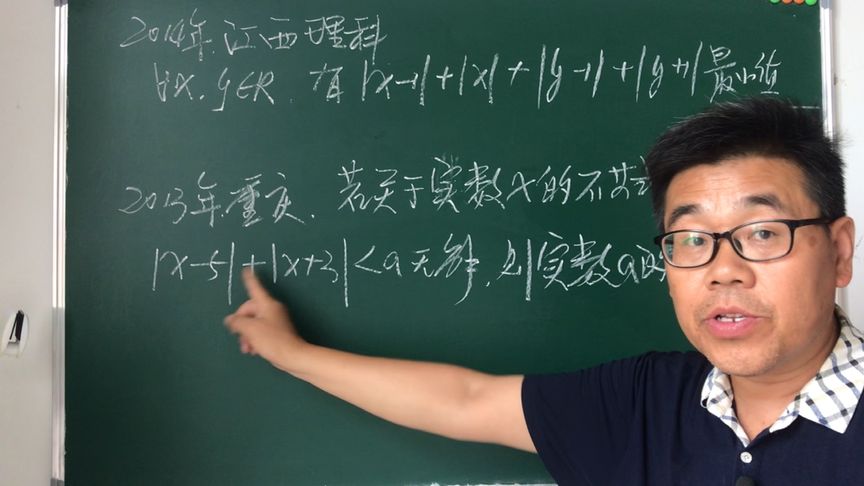 2014年.江西理科
∀x.y∈R.有|x-1|+|x|+|y-1|+|y+1|最小值
2013年重庆.若关于实数x的不等
|x-5|+|x+3|<a无解.则实数a的